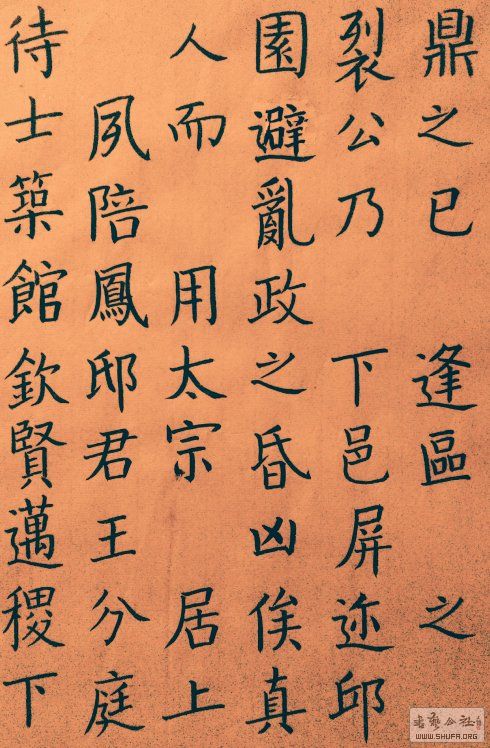 鼎之已 逢區 之
裂公乃 下邑屏迩邱
園避亂政之昏凶俟真
人而 用太宗 居上
夙陪鳳邸君王分庭
待士築館欽賢邁稷下
WWW.SHUFA.ORG